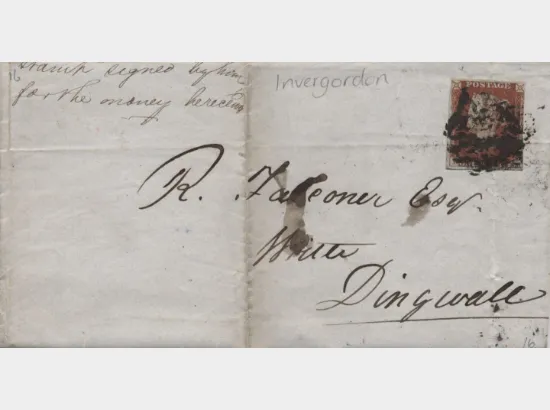 stamp signed by him
16
for the money herectus
Invergordon
POSTAGE
R. Falconer Esq.
Dingwall
16